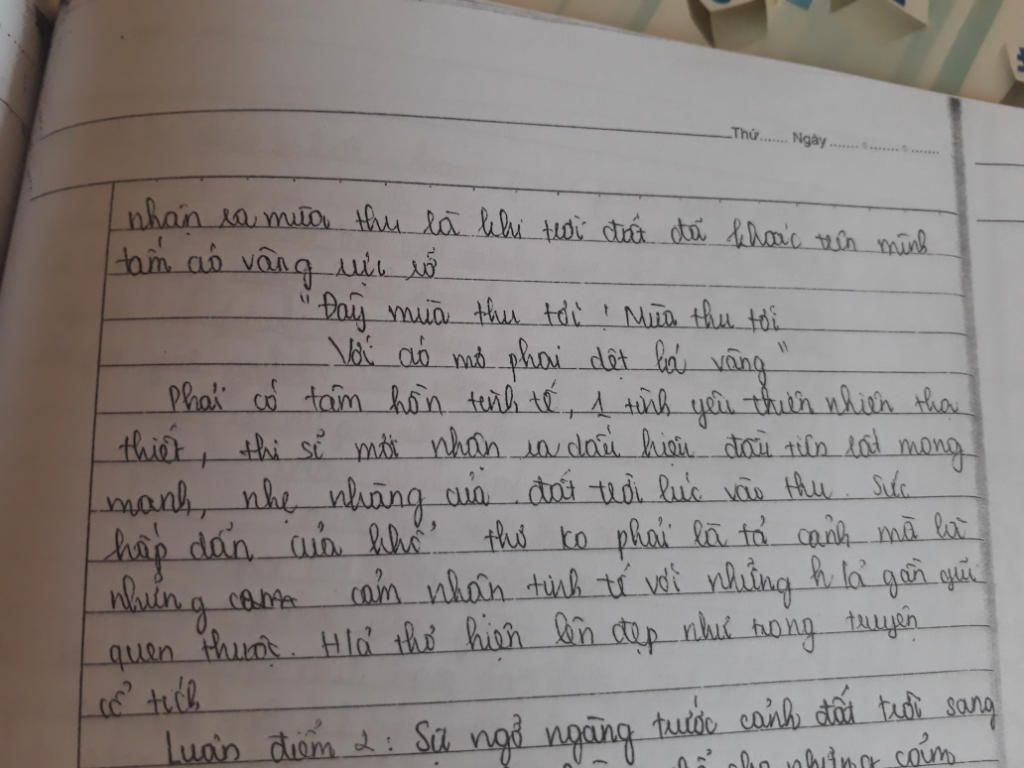 Thứ....... Ngày ....... ° ....... ° .......
nhận ra mùa thu là khi trời đất đã khoác trên mình
tấm áo vàng rực rỡ
"Đây mùa thu tới! Mùa thu tới
Với áo mơ phai dệt lá vàng"
Phải có tâm hồn tinh tế, 1 tình yêu thiên nhiên tha
thiết, thi sĩ mới nhận ra dấu hiệu đầu tiên rất mong
manh, nhẹ nhàng của đất trời lúc vào thu. Sức
hấp dẫn của khổ thơ ko phải là tả cảnh mà là
những cảm nhận tinh tế với những h/ả gần gũi
quen thuộc. H/ả thơ hiện lên đẹp như trong truyện
cổ tích
Luận điểm 2: Sự ngỡ ngàng trước cảnh đất trời sang
cho những cảm